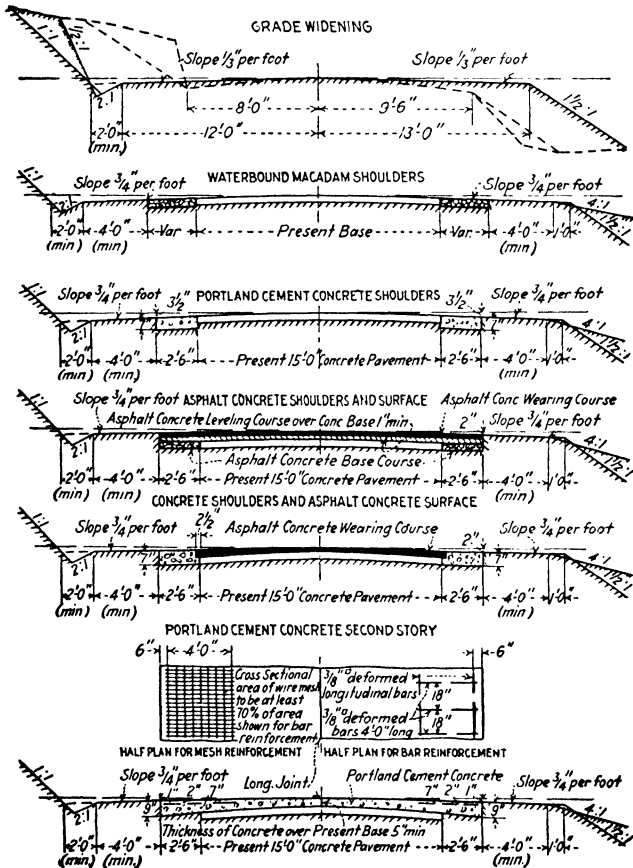 GRADE WIDENING
1½:1
1:1
Slope ⅓" per foot
Slope ⅓" per foot
2:1
8'0"
9'6"
1½:1
2'0"
12'0"
13'0"
(min.)
WATERBOUND MACADAM SHOULDERS
1:1
Slope ¾" per foot
Slope ¾" per foot
2:1
4:1
1½:1
2'0" 4'0" Var Present Base Var. 4'0" 1'0"
(min) (min) (min)
1:1
Slope ¾" per foot
3½" PORTLAND CEMENT CONCRETE SHOULDERS 3½"
Slope ¾" per foot
2:1
7"
7"
4:1
1½:1
2'0" 4'0" 2'6" Present 15'0" Concrete Pavement 2'6" 4'0" 1'0"
(min) (min) (min)
Slope ¾" per foot ASPHALT CONCRETE SHOULDERS AND SURFACE Asphalt Conc Wearing Course
1:1
Asphalt Concrete Leveling Course over Conc Base 1" min
2" Slope ¾" per foot
2:1
4:1
1½:1
Asphalt Concrete Base Course
2'0" 4'0" 2'6" Present 15'0" Concrete Pavement 2'6" 4'0" 1'0"
(min) (min) (min)
CONCRETE SHOULDERS AND ASPHALT CONCRETE SURFACE
1:1
Slope ¾" per foot
2½"
Asphalt Concrete Wearing Course
2"
Slope ¾" per foot
2:1
7"
7"
4:1
1½:1
2'0" 4'0" 2'6" Present 15'0" Concrete Pavement 2'6" 4'0" 1'0"
(min) (min) (min)
PORTLAND CEMENT CONCRETE SECOND STORY
6" 4'0" 6"
Cross Sectional
area of wire mesh
to be at least
70% of area
shown for bar
reinforcement
⅜"□ deformed
longitudinal bars
18"
⅜"□ deformed
bars 4'0" long
18"
HALF PLAN FOR MESH REINFORCEMENT
HALF PLAN FOR BAR REINFORCEMENT
1:1
Slope ¾" per foot
Long. Joint
Portland Cement Concrete
Slope ¾" per foot
1" 2" 7"
7" 2" 1"
2:1
9"
9"
4:1
1½:1
Thickness of Concrete over Present Base 5" min
2'0" 4'0" 2'6" Present 15'0" Concrete Pavement 2'6" 4'0" 1'0"
(min) (min) (min)